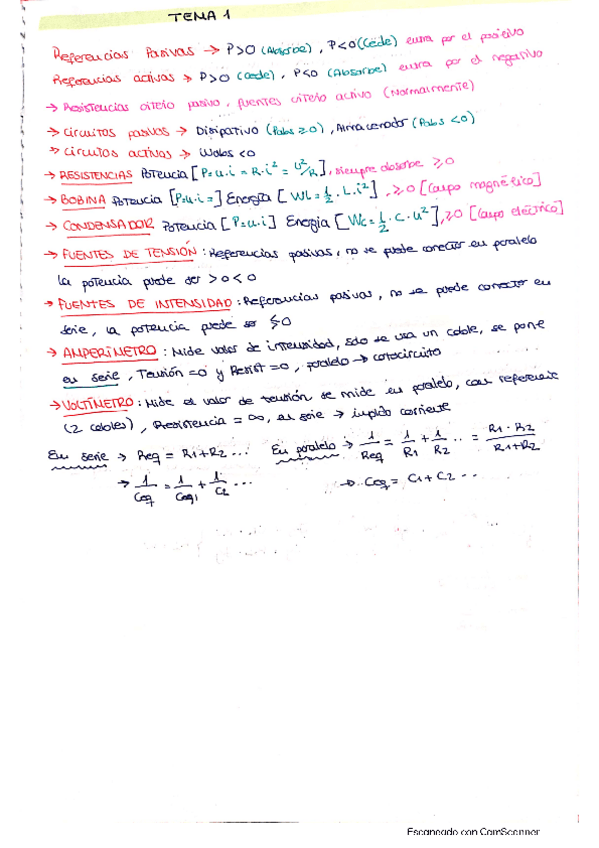 TEMA 1
Referencias Pasivas → P>0 (Absorbe), P<0 (Cede) entra por el positivo
Referencias activas → P>0 (cede), P<0 (Absorbe) entra por el negativo
→ Resistencias criterio pasivo, fuentes criterio activo (Normalmente)
→ Circuitos pasivos → Disipativo (Pabs ≥0), Almacenador (Pabs <0)
→ Circuitos activos → Wabs <0
→ RESISTENCIAS Potencia [P=u·i = R·i² = U²/R], siempre absorbe ≥0
→ BOBINA Potencia [P=u·i=] Energía [WL=1/2·L·i²], ≥0 [Campo magnético]
→ CONDENSADOR Potencia [P=u·i] Energia [Wc=1/2·C·u²], ≥0 [Campo eléctrico]
→ FUENTES DE TENSIÓN: Referencias pasivas, no se puede conectar en paralelo
La potencia puede ser >0<0
→ FUENTES DE INTENSIDAD: Referencias pasivas, no se puede conectar en
serie, la potencia puede ser ≶0
→ AMPERÍMETRO: Mide valor de intensidad, solo se usa un cable, se pone
en serie, Tensión =0 y Resist =0, paralelo → cortocircuito
→ VOLTÍMETRO: Mide el valor de tensión se mide en paralelo, con referencia
(2 cables), Resistencia = ∞, en serie → impide corriente
En serie → Req = R1+R2 ... En paralelo → 1/Req = 1/R1 + 1/R2 .. = R1·R2/R1+R2
→ 1/Ceq = 1/Ceq1 + 1/C2 ... → Ceq = C1+C2 ...
Escaneado con CamScanner